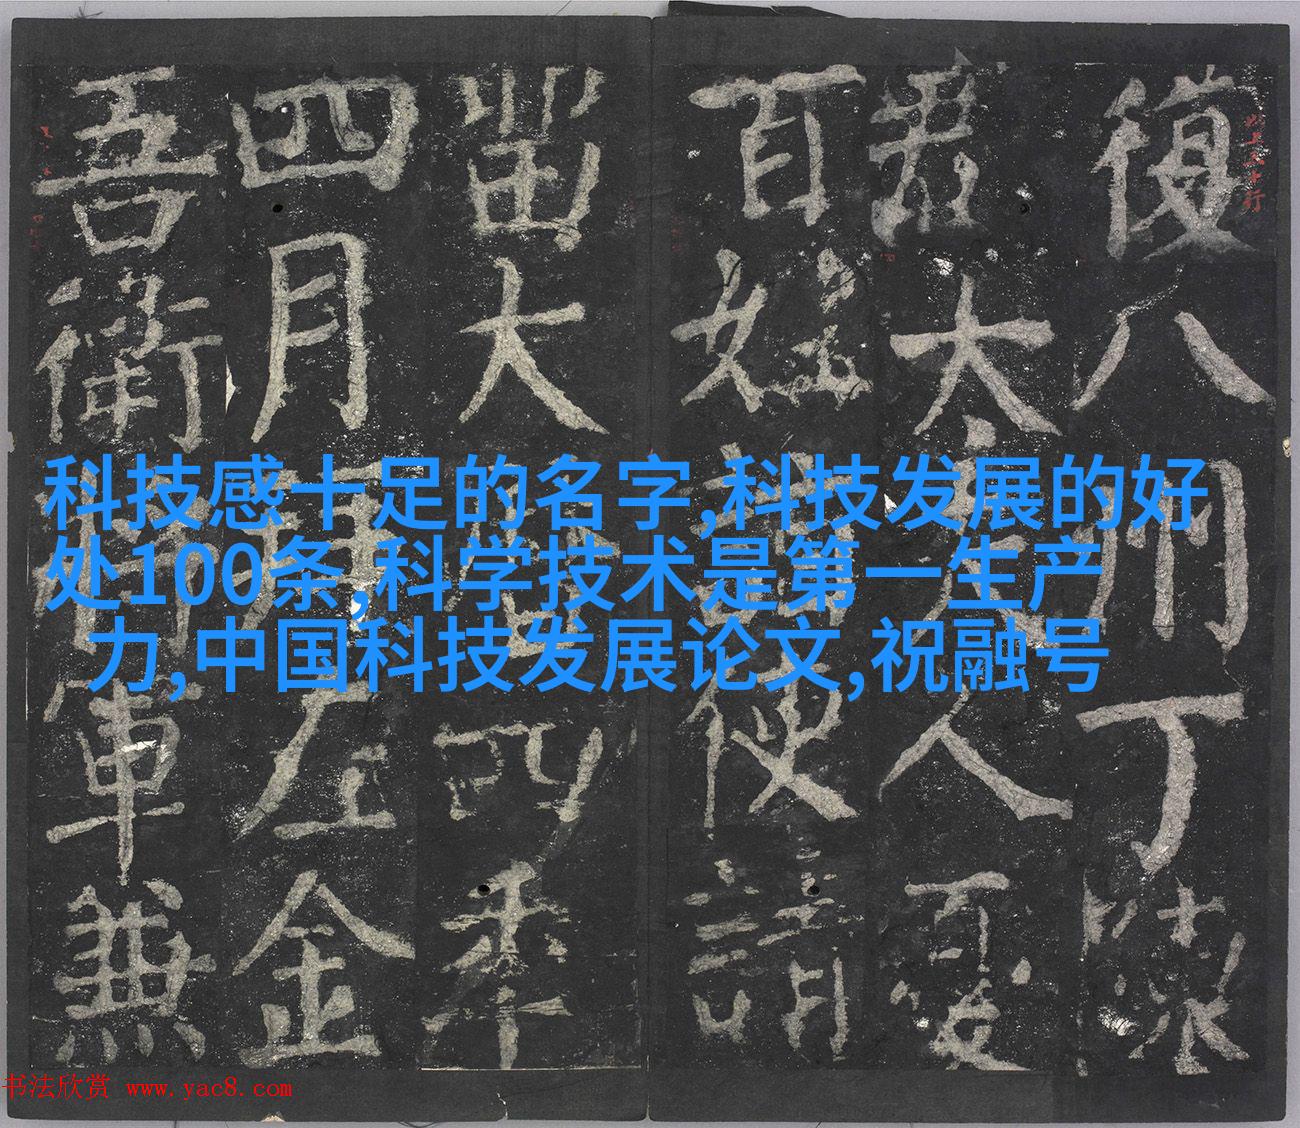 復八州丁陳
郡太夫人憂
百姓詣使請
留大曆四秊
四月拜左金
吾衛將軍兼
科技感十足的名字,科技发展的好
处100条,科学技术是第一生产
力,中国科技发展论文,祝融号
书法欣赏 www.yac8.com